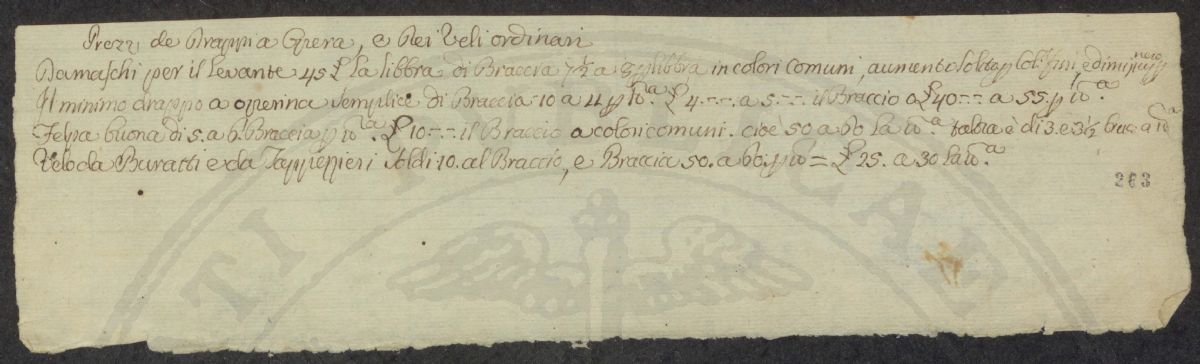 Prezzi de Drappi a Opera, e Dei Veli ordinari
Damaschi per il Levante 45 £ la libbra di Braccia 7½ a 8 p libbra in colori comuni, aumento soldi p Col: fini, e dimi
Il minimo drappo a operina semplice di Braccia 10 a 11 p lb.a £ 4 --- a 5 --- il Braccio o £ 40 -- a 55. p lb.a
Felpa buona di 5. a 6. Braccia p lb.a £ 10 --- il Braccio a colori comuni. cioè 50 a 60 la lb.a è di 3. e 3½ brac a lb.a
Velo da Buratti e da soldi 10. al Braccio, e Braccia 50. a 60. p lb = £ 25. a 30 la lb.a
263